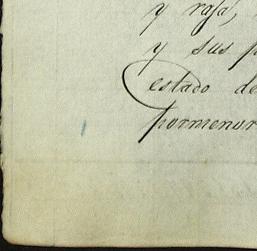 y rasa,
y sus p
estado de
pormenor